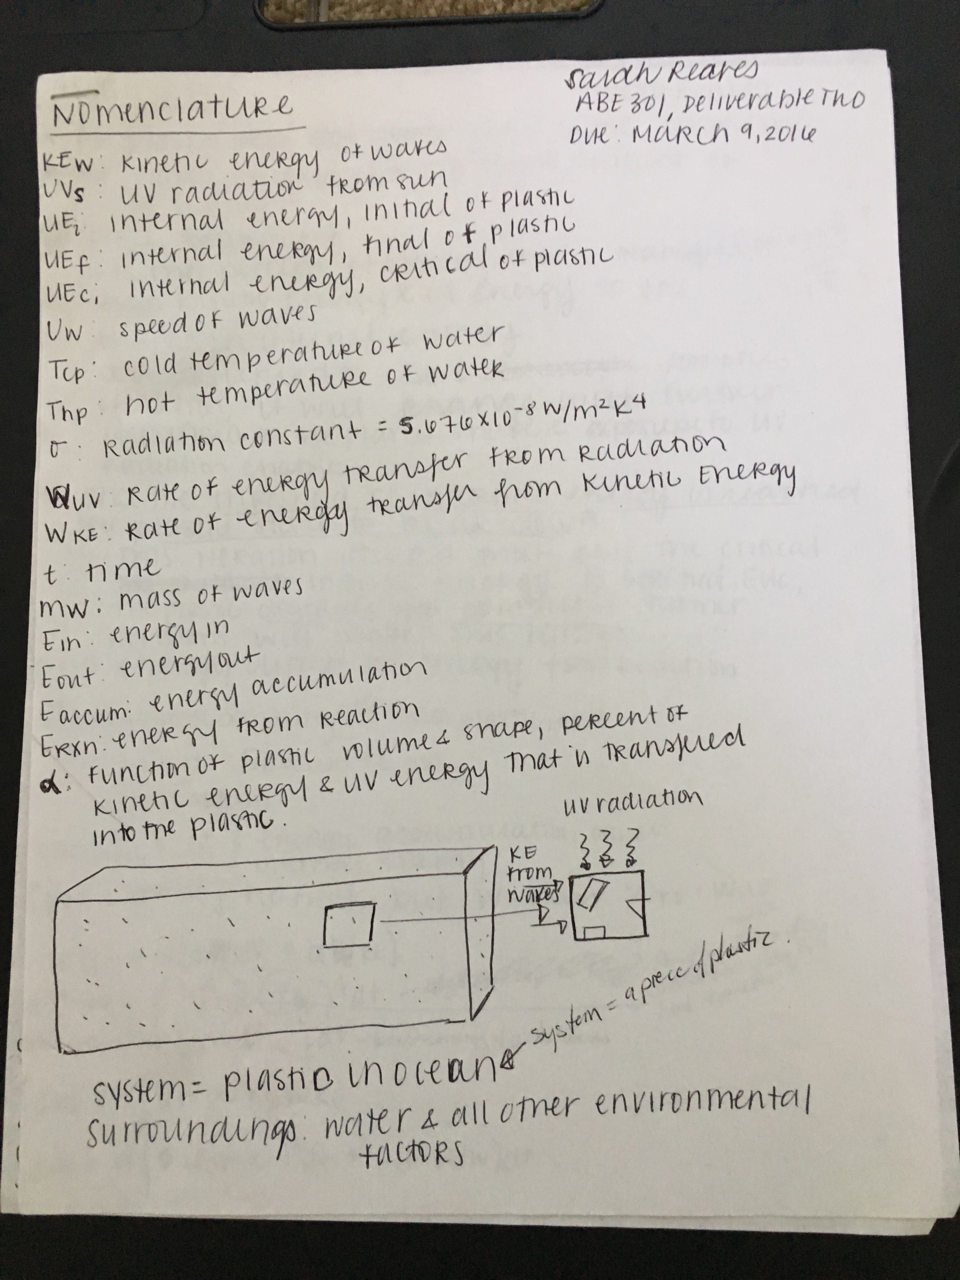 Nomenclature
Sarah Reares
ABE 301, Deliverable Two
Due: March 9, 2016
KEw: kinetic energy of waves
UVs: UV radiation from sun
UEi: internal energy, initial of plastic
UEf: internal energy, final of plastic
UEc: internal energy, critical of plastic
Uw: speed of waves
Tcp: cold temperature of water
Thp: hot temperature of water
σ: Radiation constant = 5.676x10⁻⁸ W/m²K⁴
Wuv: Rate of energy transfer from Radiation
WKE: Rate of energy transfer from Kinetic Energy
t: time
mw: mass of waves
Ein: energy in
Eout: energy out
Eaccum: energy accumulation
Erxn: energy from reaction
α: function of plastic volume & shape, percent of
kinetic energy & UV energy that is transferred
into the plastic.
UV radiation
KE
from
waves
system = a piece of plastic.
system = plastic in ocean
surroundings: water & all other environmental
factors